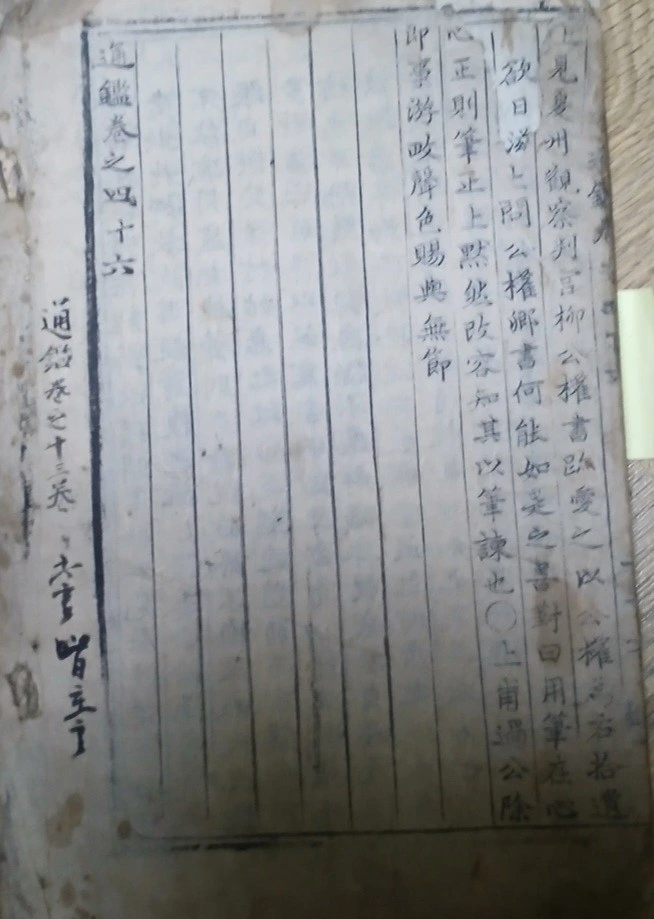 上見夏州觀察判官柳公權書跡愛之以公權爲右拾遺
欲日滋上問公權卿書何能如是之善對曰用筆在心
心正則筆正上默然改容知其以筆諫也〇上甫過公除
即事游畋聲色賜與無節
通鑑卷之四十六
通鑑卷之十三卷